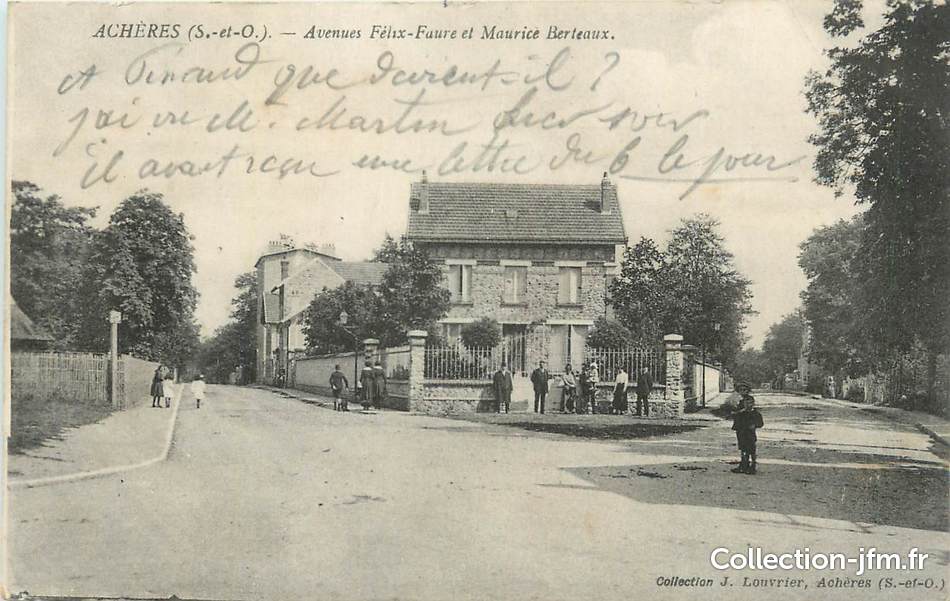 ACHÈRES (S.-et-O.). — Avenues Félix-Faure et Maurice Berteaux.
et Pinaud que devient-il ?
j'ai vu M. Martin hier soir
il avait reçu une lettre du 6 le jour
Collection-jfm.fr
Collection J. Louvrier, Achères (S.-et-O.)